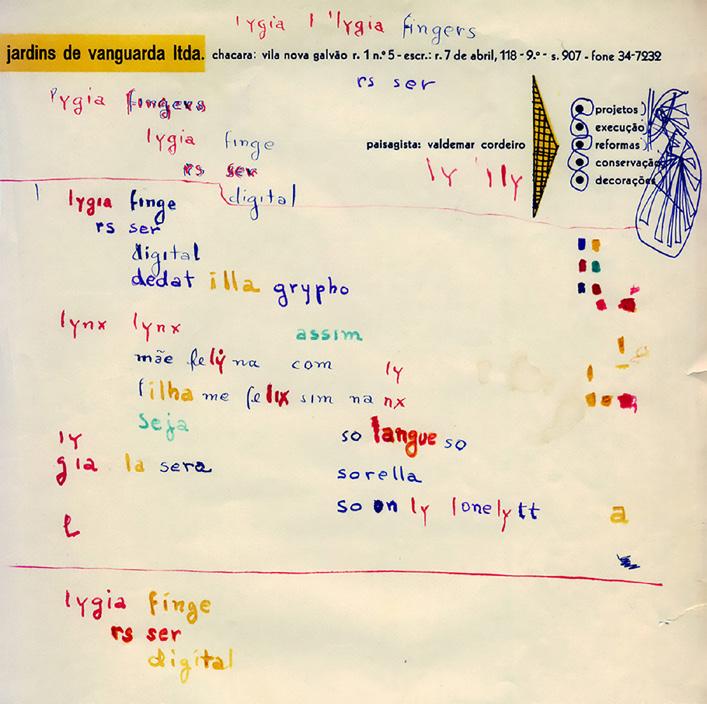 lygia l 'lygia fingers
jardins de vanguarda ltda. chacara: vila nova galvão r. 1 n.º 5 - escr.: r. 7 de abril, 118 - 9.º - s. 907 - fone 34-7932
rs ser
lygia fingers
lygia finge
rs ser
digital
paisagista: valdemar cordeiro
ly 'l ly
projetos
execução
reformas
conservação
decorações
lygia finge
rs ser
digital
dedat illa grypho
lynx lynx assim
mãe felyna com ly
filha me felix sim na nx
seja
ly
gia la sera
so langue so
sorella
so only lonelytt
l
a
lygia finge
rs ser
digital